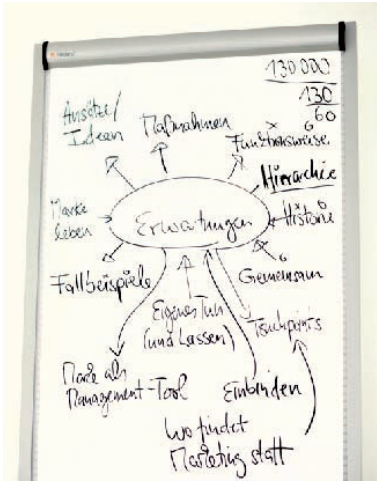 130 000
130
60
Ansätze/
Ideen
Maßnahmen
Funktionsweise
Hierarchie
Marke
leben
Erwartungen
Historie
Fallbeispiele
Gemeinsam
Eigenes Tun
(und Lassen)
Touchpoints
Marke als
Management-Tool
Einbinden
Wo findet
Marketing statt